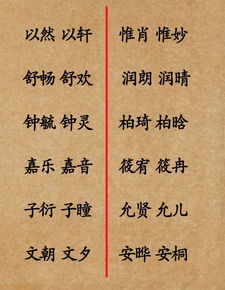 以然 以轩 惟肖 惟妙
舒畅 舒欢 润朗 润晴
钟毓 钟灵 柏琦 柏晗
嘉乐 嘉音 筱宥 筱冉
子衍 子瞳 允贤 允儿
文朝 文夕 安晔 安桐